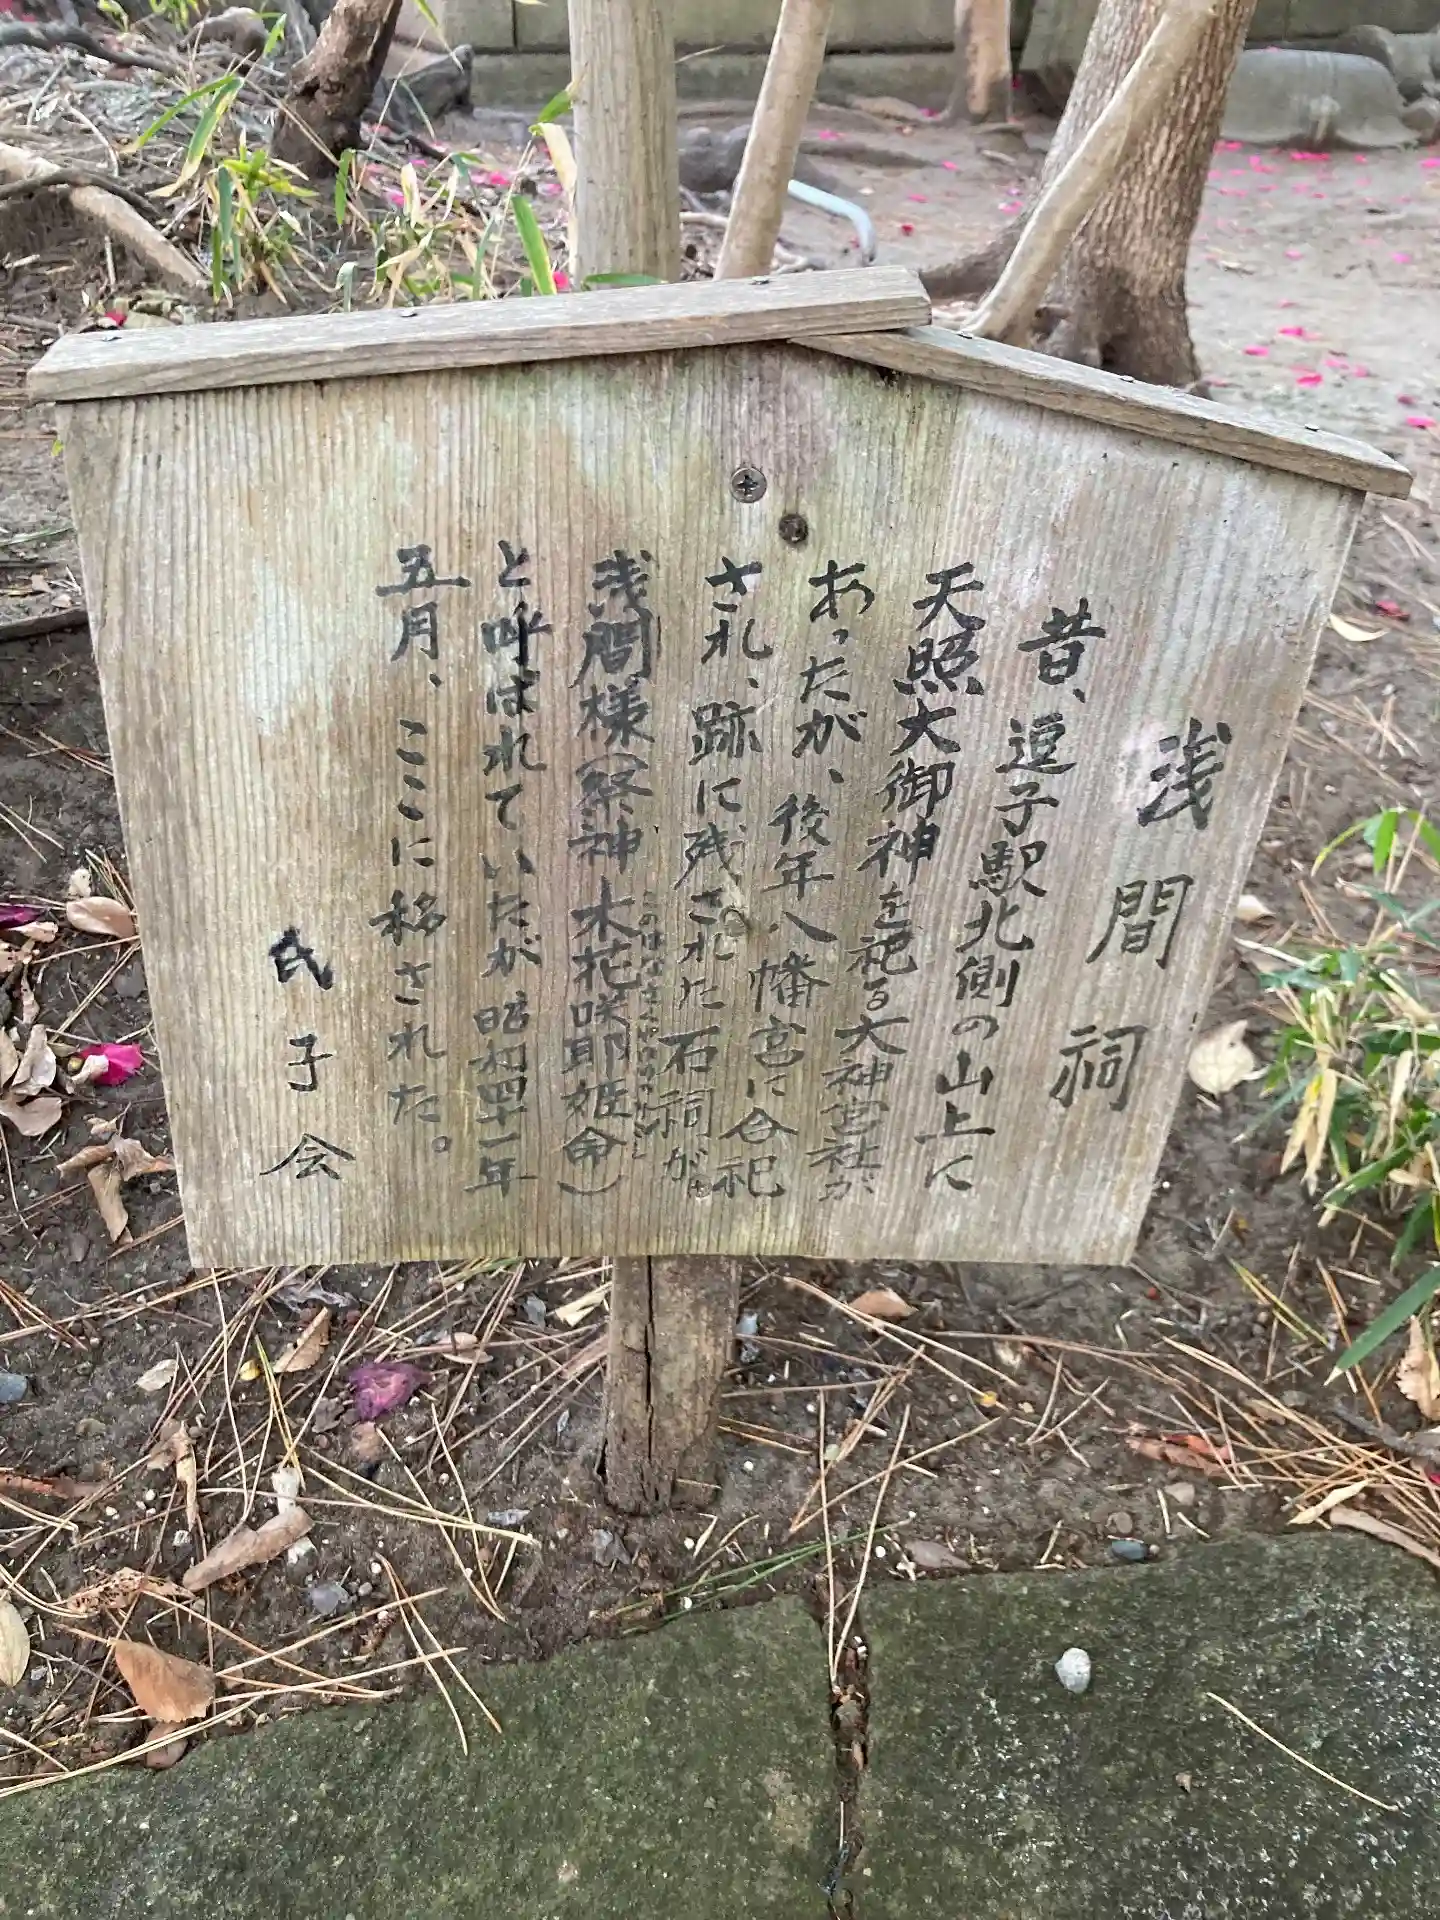 浅間祠
昔、逗子駅北側の山上に
天照大御神を祀る大神宮社が
あったが、後年八幡宮に合祀
され、跡に残された石祠が
浅間様(祭神 木花咲耶姫命)
このはなさくやひめのみこと
と呼ばれていたが、昭和四十一年
五月、ここに移された。
氏子会